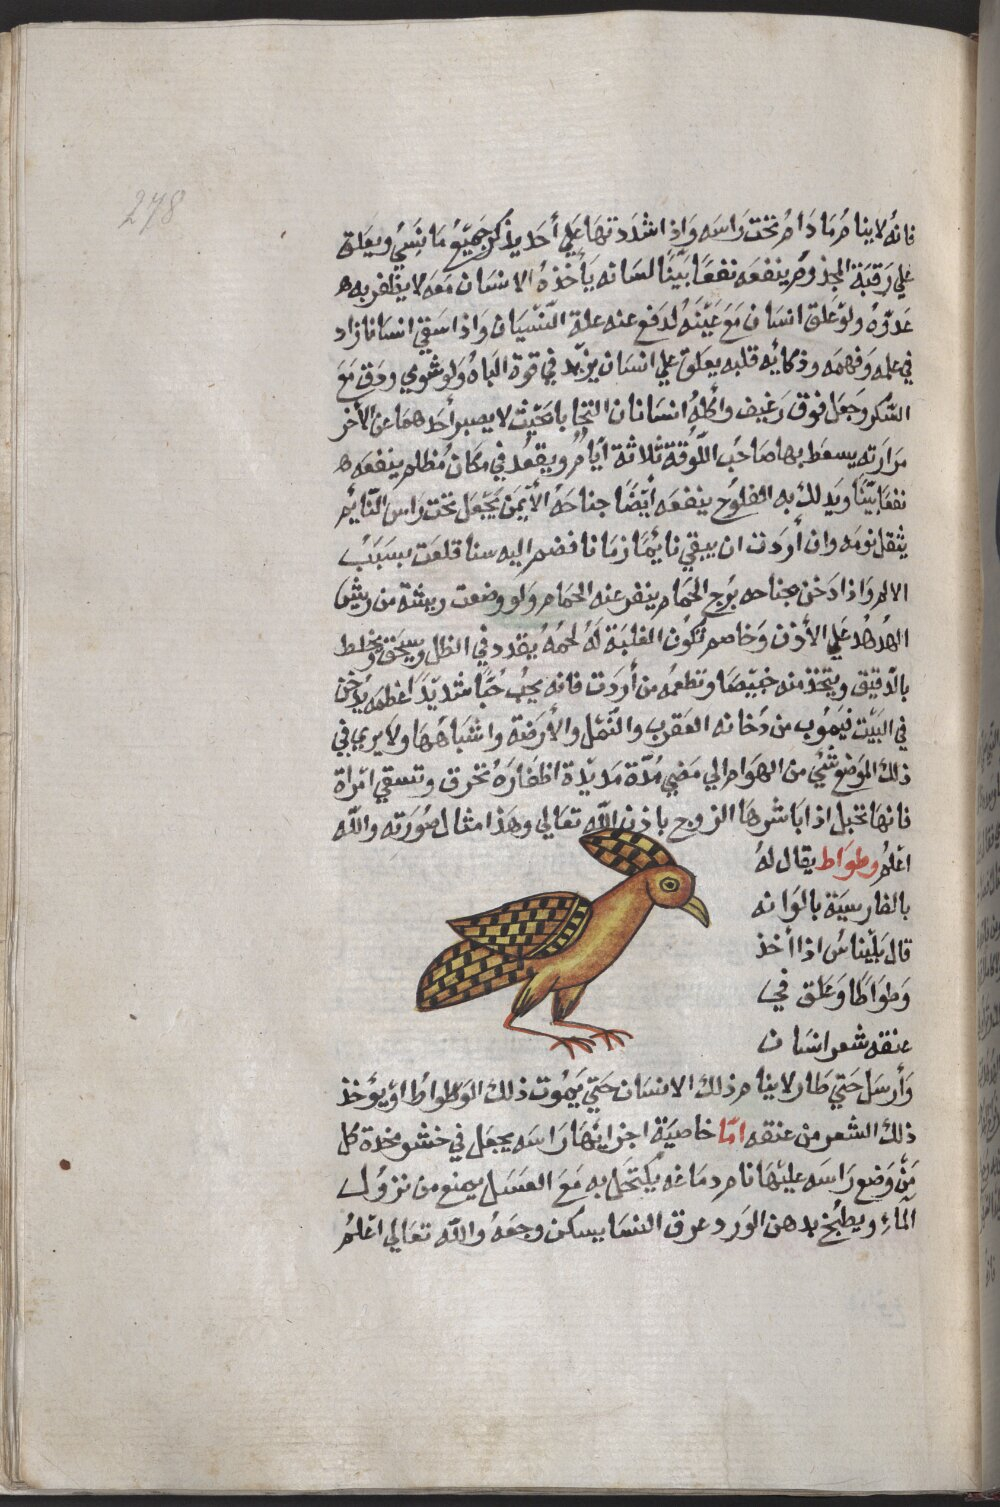 278
فانه لا ينام مادام تحت راسه واذا شددتها علي أحد يذكر جميع ما نسي ويعلق
علي رقبة المجذوم ينفعه نفعا بينا لسانه يأخذه الانسان معه لا يظفر به
عدوه ولو علق انسان مع عينه لدفع عنه علة النسيان واذا سقي انسانا زاد
في علمه وفهمه وذكائه قلبه يعلق علي انسان يزيد في قوة الباه ولو شوي ودق مع
السكر وجعل فوق رغيف واكله انسانان التحابا بحيث لا يصبر أحدهما عن الأخر
مرارته يسعط بها صاحب اللوقة ثلاثة أيام ويقعد في مكان مظلم ينفعه
نفعا بينا ويدلك به المفلوج ينفعه أيضا جناحه الأيمن يجعل تحت راس النائم
يثقل نومه وان أردت ان يبقي نائما زمانا فضم اليه سنا قلعت بسبب
الالم واذا دخن بجناحه برج الحمام ينفر عنه الحمام ولو وضعت ريشة من ريش
الهدهد علي الأذن وخاصم تكون الغلبة له لحمه يقدد في الظل ويسحق ويخلط
بالدقيق ويتخذ منه خبيصا وتطعمه من أردت فانه يحب حبا شديدا عظمه يدخن
في البيت فيموت من دخانه العقرب والنمل والأرضة واشباهها ولا يري في
ذلك الموضع شئ من الهوام الي مضي مدة مديدة اظفاره تحرق وتسقي امراة
فانها تحبل اذا باشرها الزوج باذن الله تعالي وهذا مثال صورته والله
اعلم وطواط يقال له
بالفارسية بالوانه
قال بليناس اذا أخذ
وطواطا وعلق في
عنقه شعر انسان
وأرسل حتي طار لا ينام ذلك الانسان حتي يموت ذلك الوطواط او يؤخذ
ذلك الشعر من عنقه اما خاصية اجزائها راسه يجعل في حشو مخدة كل
من وضع راسه عليها نام دماغه يكتحل به مع العسل يمنع من نزول
الماء ويطبخ بدهن الورد عرق النسا يسكن وجعه والله تعالي اعلم